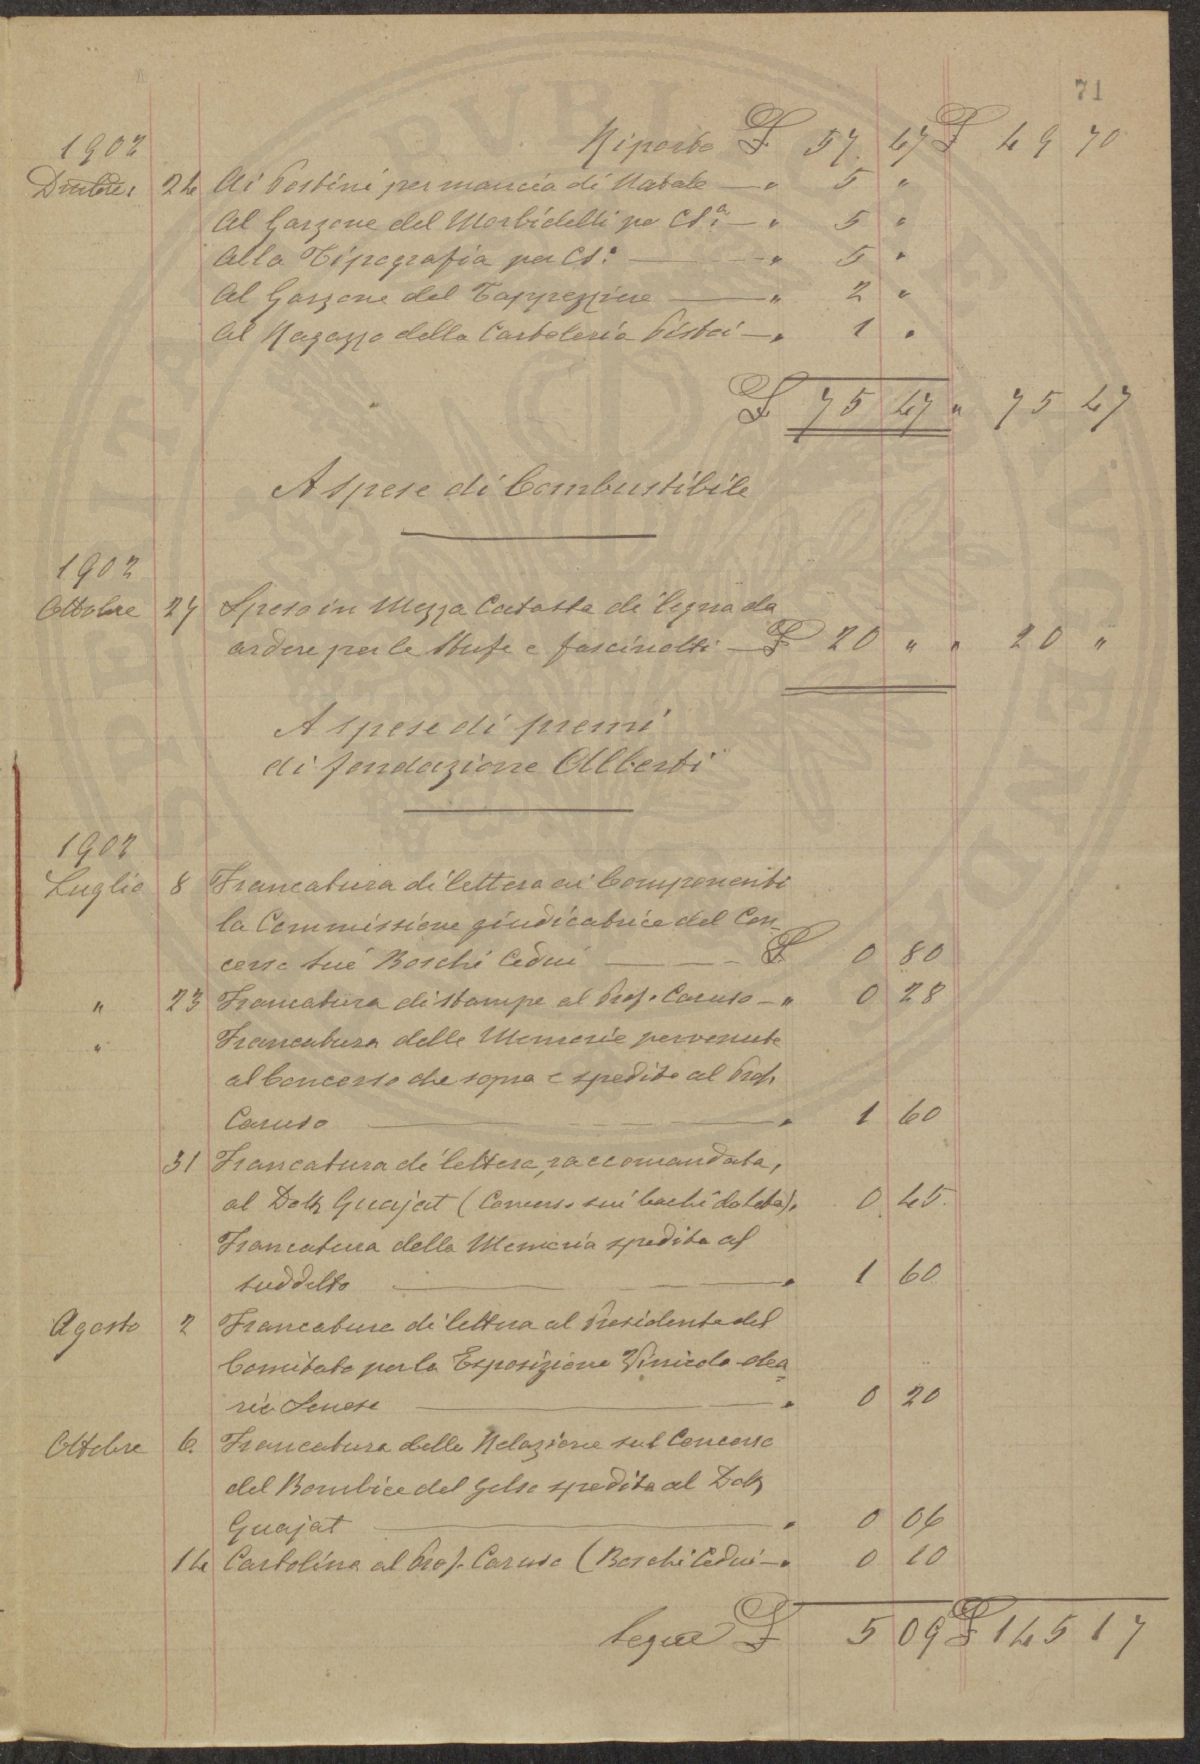 71
1902 Riporto £ 57 47 £ 49 70
Dicembre 24 Ai Postini per mancia di Natale — " 5 "
Al Garzone del Morbidelli per Cs.ª — " 5 "
Alla Tipografia per Cs.ª — " 5 "
Al Garzone del Tappezziere — " 2 "
Al Ragazzo della Cartoleria Pistoi — " 1 "
£ 75 47 " 75 47
A spese di Combustibile
1902
Ottobre 27 Speso in Mezza Catasta di legna da
ardere per le Stufe e fascinotti — £ 20 " " 20 "
A spese di premi
di fondazione Alberti
1902
Luglio 8 Francatura di lettera ai Componenti
la Commissione giudicatrice del Con-
corso sui Boschi Cedui — £ 0 80
" 23 Francatura di stampe al Prof. Caruso — " 0 28
" Francatura delle Memorie pervenute
al Concorso che sopra e spedite al Prof.
Caruso — " 1 60
31 Francatura di lettera, raccomandata,
al Dott. Guajat (Concorso sui bachi da seta) " 0 45
Francatura della Memoria spedita al
suddetto — " 1 60
Agosto 2 Francatura di lettera al Presidente del
Comitato per la Esposizione Vinicolo-olea=
ria Senese — " 0 20
Ottobre 6. Francatura della Relazione sul Concorso
del Bombice del Gelso spedita al Dott.
Guajat — " 0 06
14 Cartolina al Prof. Caruso (Boschi Cedui — " 0 10
Segue £ 5 09 £ 145 17